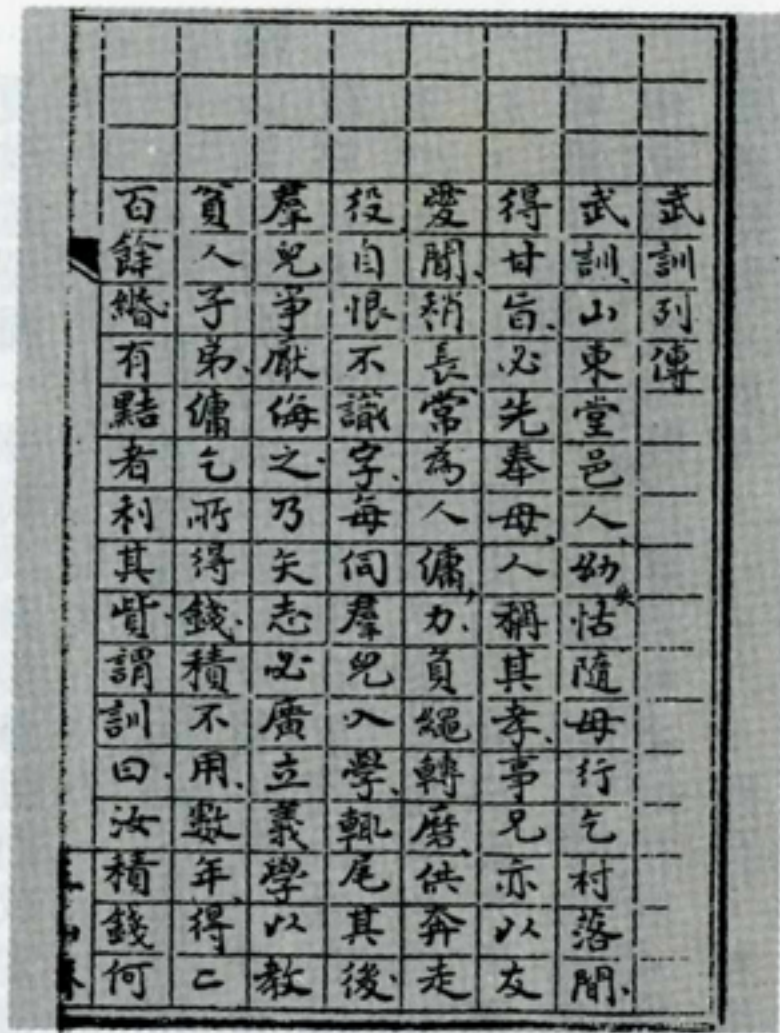 武訓列傳
武訓、山東堂邑人、幼失怙隨母行乞村落間、
得甘旨、必先奉母、人稱其孝、事兄亦以友
愛聞、稍長、常為人傭力、負繩轉磨、供奔走
役、自恨不識字、每伺羣兒入學、輒尾其後、
羣兒爭厭侮之、乃矢志必廣立義學以教
貧人子弟、傭乞所得錢、積不用、數年、得二
百餘緡、有黠者利其貲、謂訓曰、汝積錢何